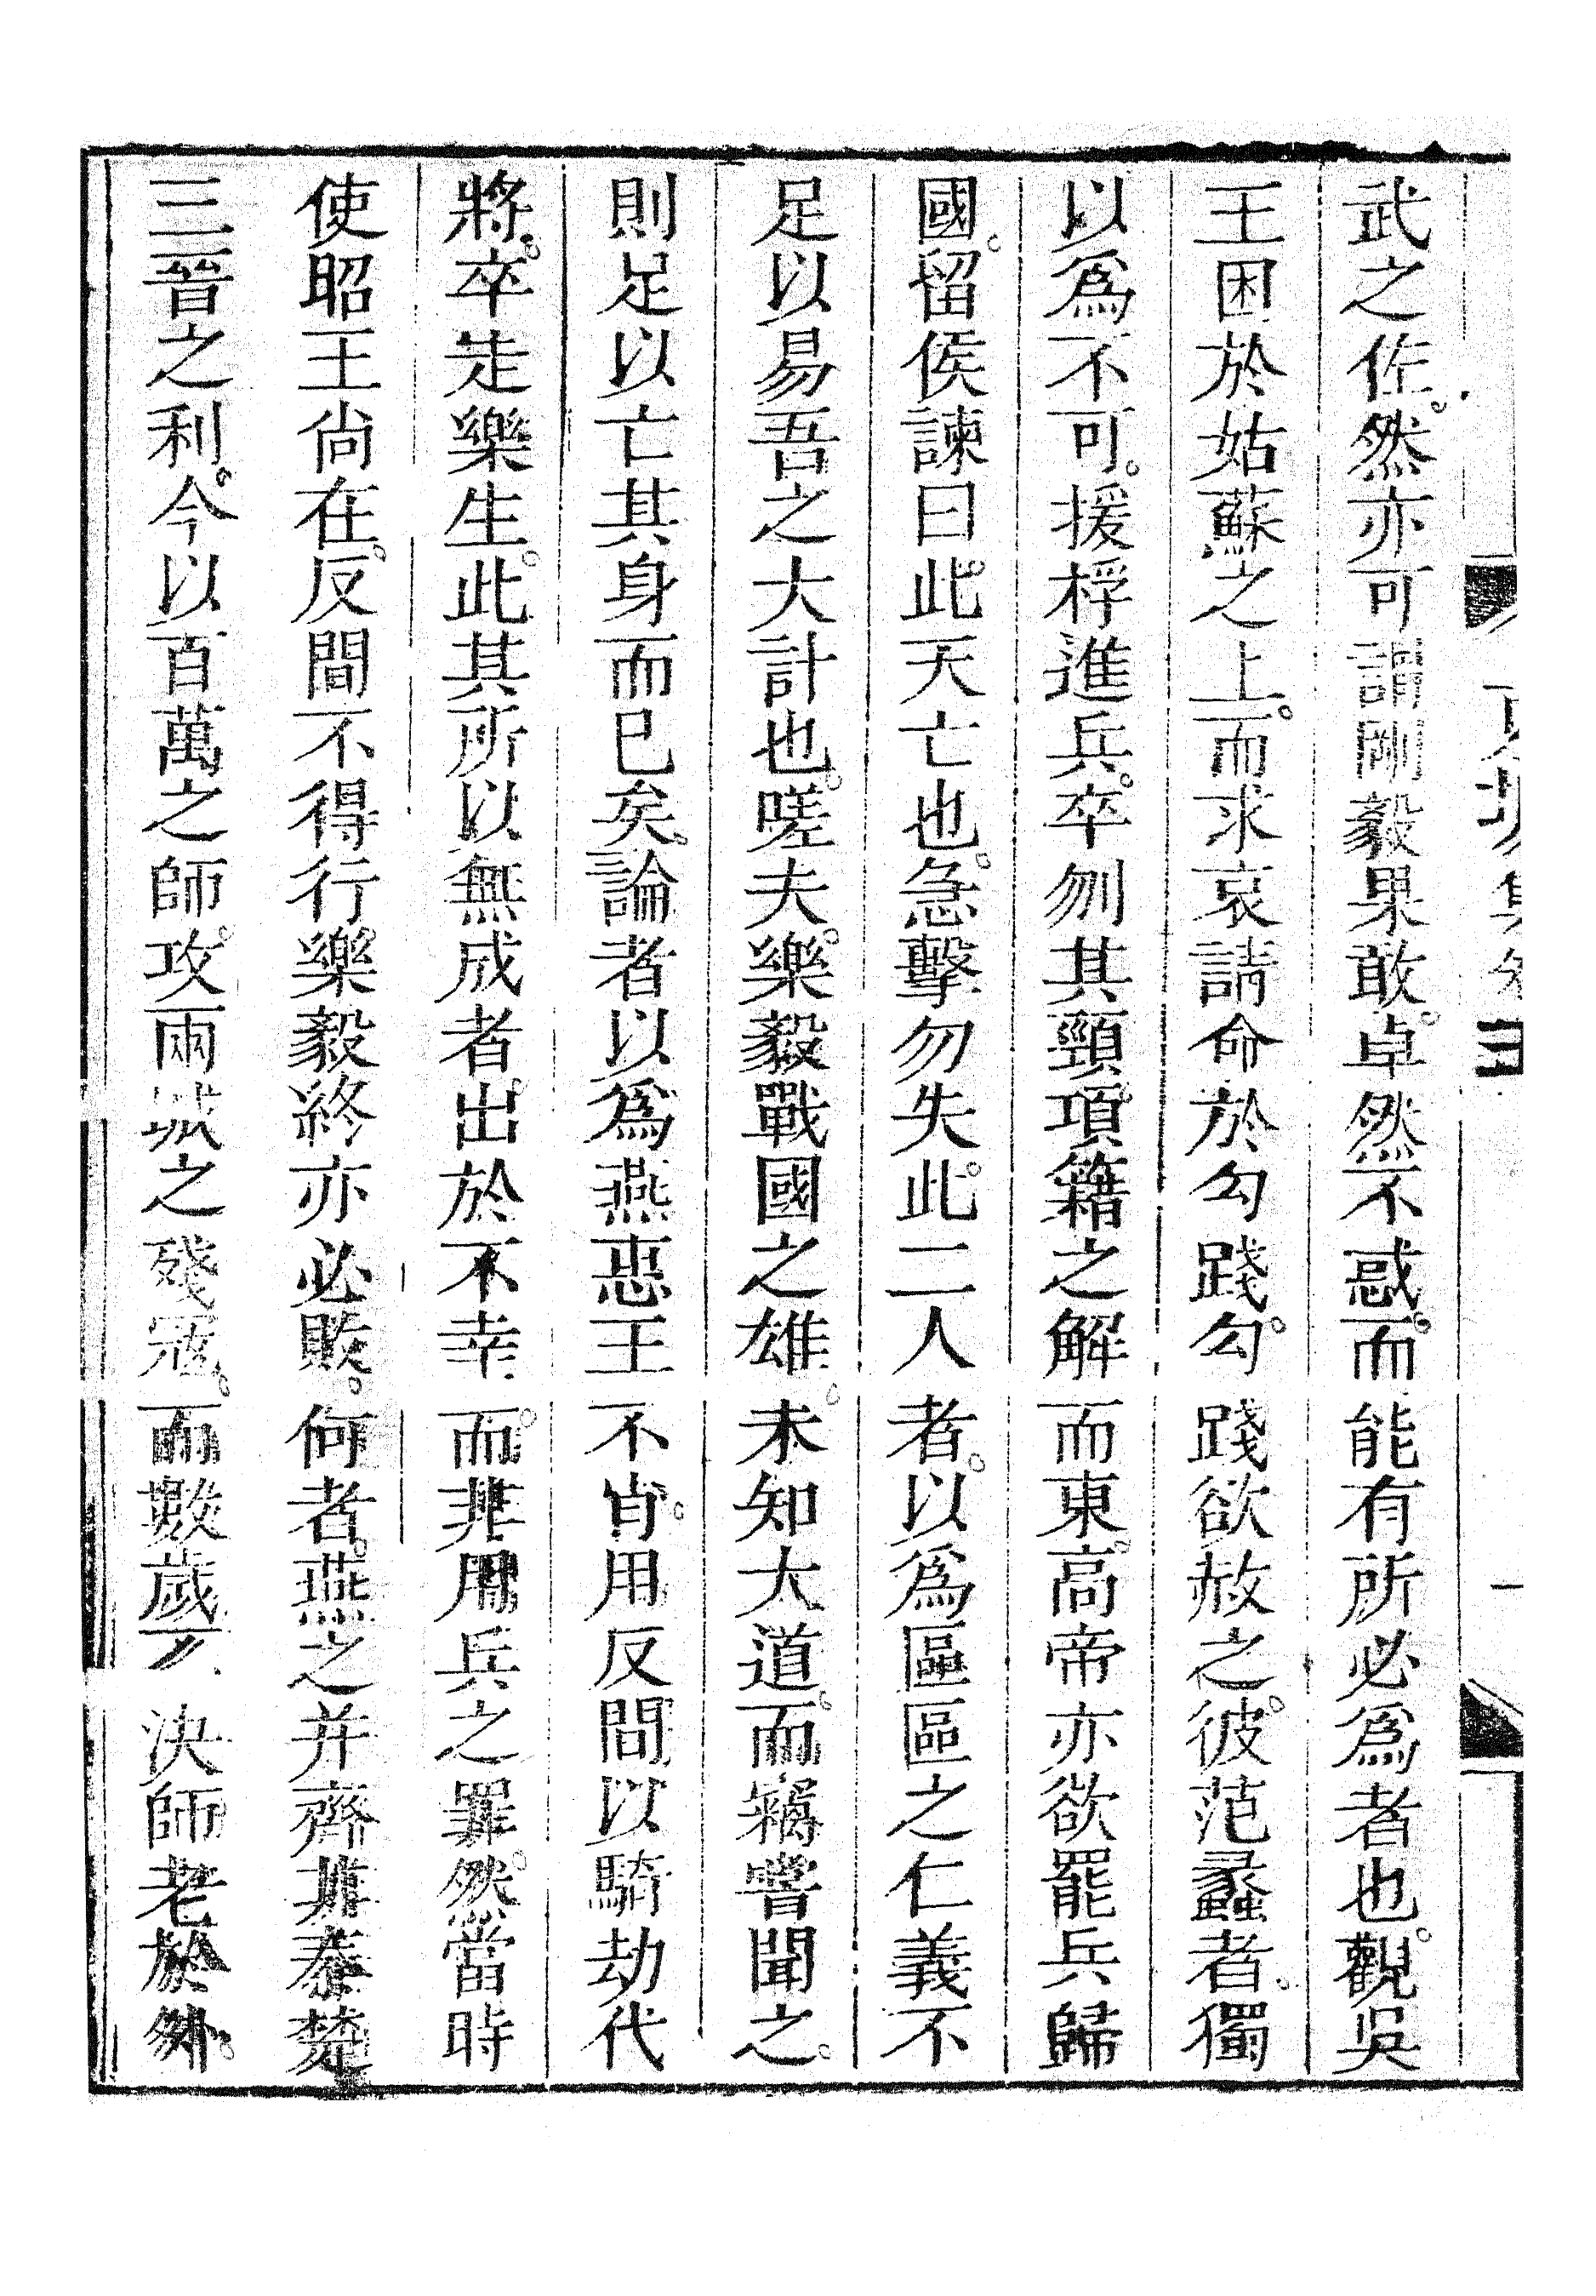 武之佐。然亦可謂剛毅果敢。卓然不惑。而能有所必爲者也。觀吳
王困於姑蘇之上。而求哀請命於勾踐。勾踐欲赦之。彼范蠡者。獨
以爲不可。援桴進兵。卒刎其頸。項籍之解而東。高帝亦欲罷兵歸
國。留侯諫曰。此天亡也。急擊勿失。此二人者。以爲區區之仁義不
足以易吾之大計也。嗟夫。樂毅戰國之雄。未知大道。而竊嘗聞之。
則足以亡其身而已矣。論者以爲燕惠王不肖。用反間以騎劫代
將。卒走樂生。此其所以無成者。出於不幸。而非用兵之罪。然當時
使昭王尙在。反間不得行。樂毅終亦必敗。何者。燕之并齊。非秦楚
三晉之利。今以百萬之師。攻兩城之殘寇。而數歲不決。師老於外。